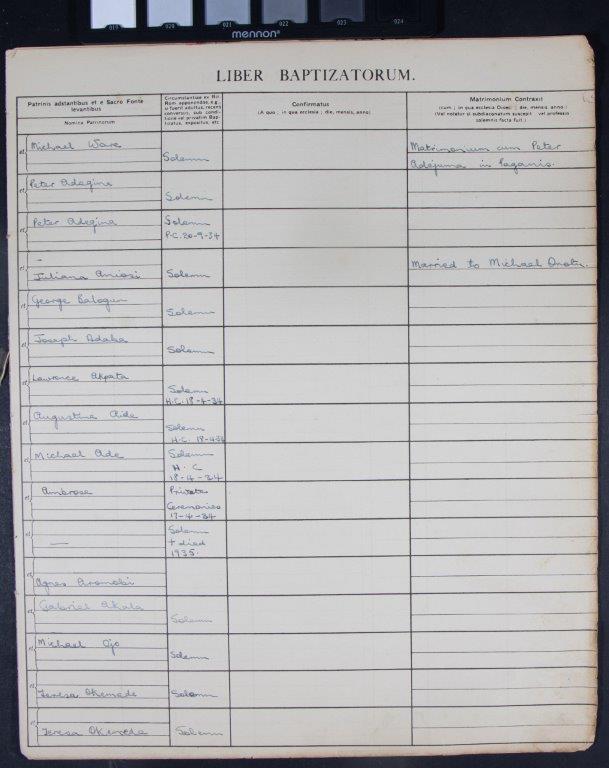 019 020 021 022 023 024
mennon
LIBER BAPTIZATORUM.
Patrinis adstantibus et e Sacro Fonte
levantibus
Nomina Patrinorum
Circumstantiae ex Rit.
Rom. apponendae, e.g.,
si fuerit adultus, recens
conversis, sub condi-
tione vel privatim Bap-
tizatus, expositus, etc.
Confirmatus
(A quo ; in qua ecclesia ; die, mensis, anno)
Matrimonium Contraxit
(cum ; in qua ecclesia Dioec ; die, mensis, anno)
(Vel notatur si subdiaconatum suscepit vel professio
solemnis facta fuit.)
et Michael Ware
Solemn
Matrimonium cum Peter
Adejuma in Paganis.
et Peter Adegina
Solemn
et Peter Adegina
Solemn
P.C. 20-9-34
et -
Juliana Aniosi
Solemn
Married to Michael
et George Balogun
Solemn
et Joseph Adaba
Solemn
et Lawrence Akpata
Solemn
H.C. 18-4-34
et Augustine Aide
Solemn
H.C. 18-4-34
et Michael Ade
Solemn
H. C
18-4-34
et Ambrose
Private
Ceremonies
17-4-34
et —
Solemn
+ died
1935.
et
Agnes Aromobi
et Gabriel Akala
Solemn
et Michael Ojo
Solemn
et
Teresa Okemade
Solemn
et
Teresa Okemeda
Solemn